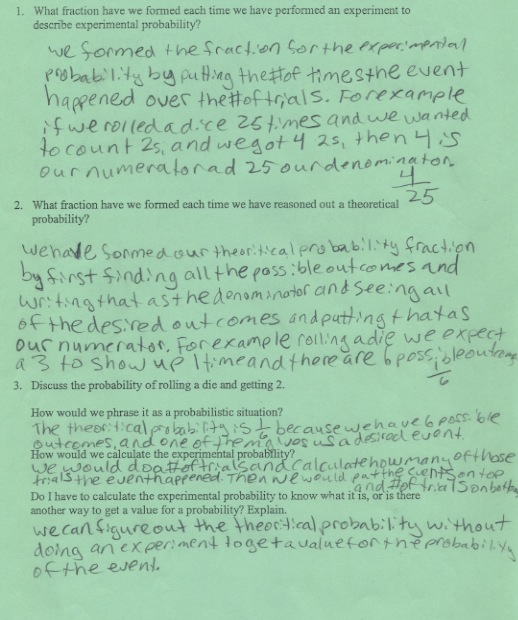 1. What fraction have we formed each time we have performed an experiment to
describe experimental probability?
we formed the fraction for the experimental
probability by putting the # of times the event
happened over the # of trials. For example
if we rolled a dice 25 times and we wanted
to count 2s, and we got 4 2s, then 4 is
our numerator ad 25 our denominator.
4/25
2. What fraction have we formed each time we have reasoned out a theoretical
probability?
we have formed our theoritical probability fraction
by first finding all the possible outcomes and
writing that as the denominator and seeing all
of the desired outcomes and putting that as
our numerator. For example rolling a die we expect
a 3 to show up 1 time and there are 6 possible outcomes
1/6
3. Discuss the probability of rolling a die and getting 2.
How would we phrase it as a probabilistic situation?
The theoritical probability is 1/6 because we have 6 possible
outcomes, and one of them gives us a desired event.
How would we calculate the experimental probability?
we would do a # of trials and calculate how many of those
trials the event happened. Then we would put the events on top
and # of trials on bottom
Do I have to calculate the experimental probability to know what it is, or is there
another way to get a value for a probability? Explain.
we can figure out the theoritical probability without
doing an experiment to get a value for the probability
of the event.